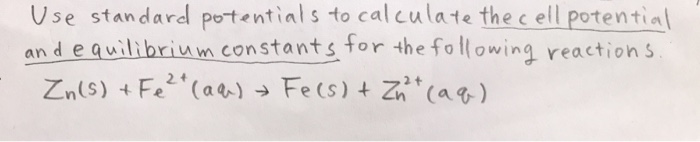 Use standard potentials to calculate the cell potential
and equilibrium constants for the following reactions.
Zn(s) + Fe²⁺(aq) → Fe(s) + Zn²⁺(aq)